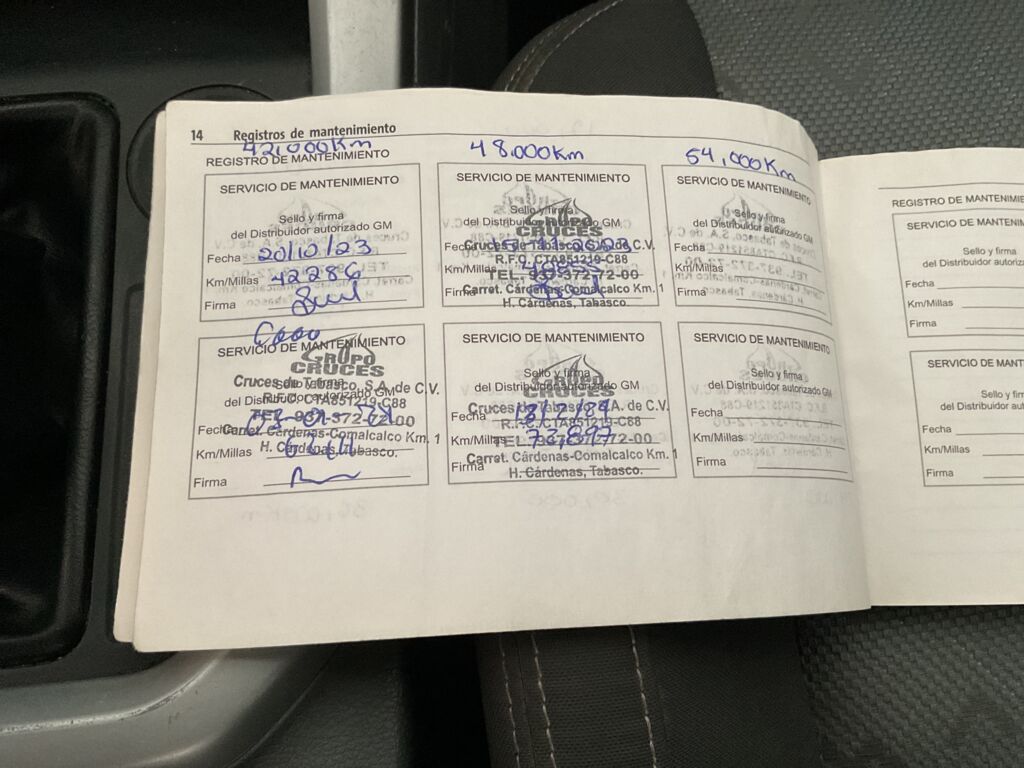 14 Registros de mantenimiento
42,000Km
48,000Km
54,000Km
REGISTRO DE MANTENIMIENTO
SERVICIO DE MANTENIMIENTO
Sello y firma
del Distribuidor autorizado GM
Fecha 20/10/23
Km/Millas 42286
Firma
SERVICIO DE MANTENIMIENTO
Sello y firma
del Distribuidor autorizado GM
GRUPO
CRUCES
Fecha
Cruces de Tabasco, S.A. de C.V.
R.F.C. CTA851219-C88
Km/Millas
TEL. 937-372-72-00
Firma
Carret. Cárdenas-Comalcalco Km. 1
H. Cárdenas, Tabasco.
SERVICIO DE MANTENIMIENTO
Sello y firma
del Distribuidor autorizado GM
Fecha
Km/Millas
Firma
SERVICIO DE MANTENIMIENTO
GRUPO
CRUCES
Sello y firma
Cruces de Tabasco, S.A. de C.V.
del Distribuidor autorizado GM
R.F.C. CTA851219-C88
Fecha
TEL. 937-372-72-00
Carret. Cárdenas-Comalcalco Km. 1
Km/Millas
H. Cárdenas, Tabasco.
Firma
SERVICIO DE MANTENIMIENTO
GRUPO
CRUCES
Sello y firma
del Distribuidor autorizado GM
Cruces de Tabasco, S.A. de C.V.
Fecha
R.F.C. CTA851219-C88
Km/Millas 73,897
TEL. 937-372-72-00
Firma
Carret. Cárdenas-Comalcalco Km. 1
H. Cárdenas, Tabasco.
SERVICIO DE MANTENIMIENTO
Sello y firma
del Distribuidor autorizado GM
Fecha
Km/Millas
Firma
REGISTRO DE MANTENIMIE
SERVICIO DE MANTENIM
Sello y firma
del Distribuidor autoriza
Fecha
Km/Millas
Firma
SERVICIO DE MANT
Sello y fir
del Distribuidor au
Fecha
Km/Millas
Firma